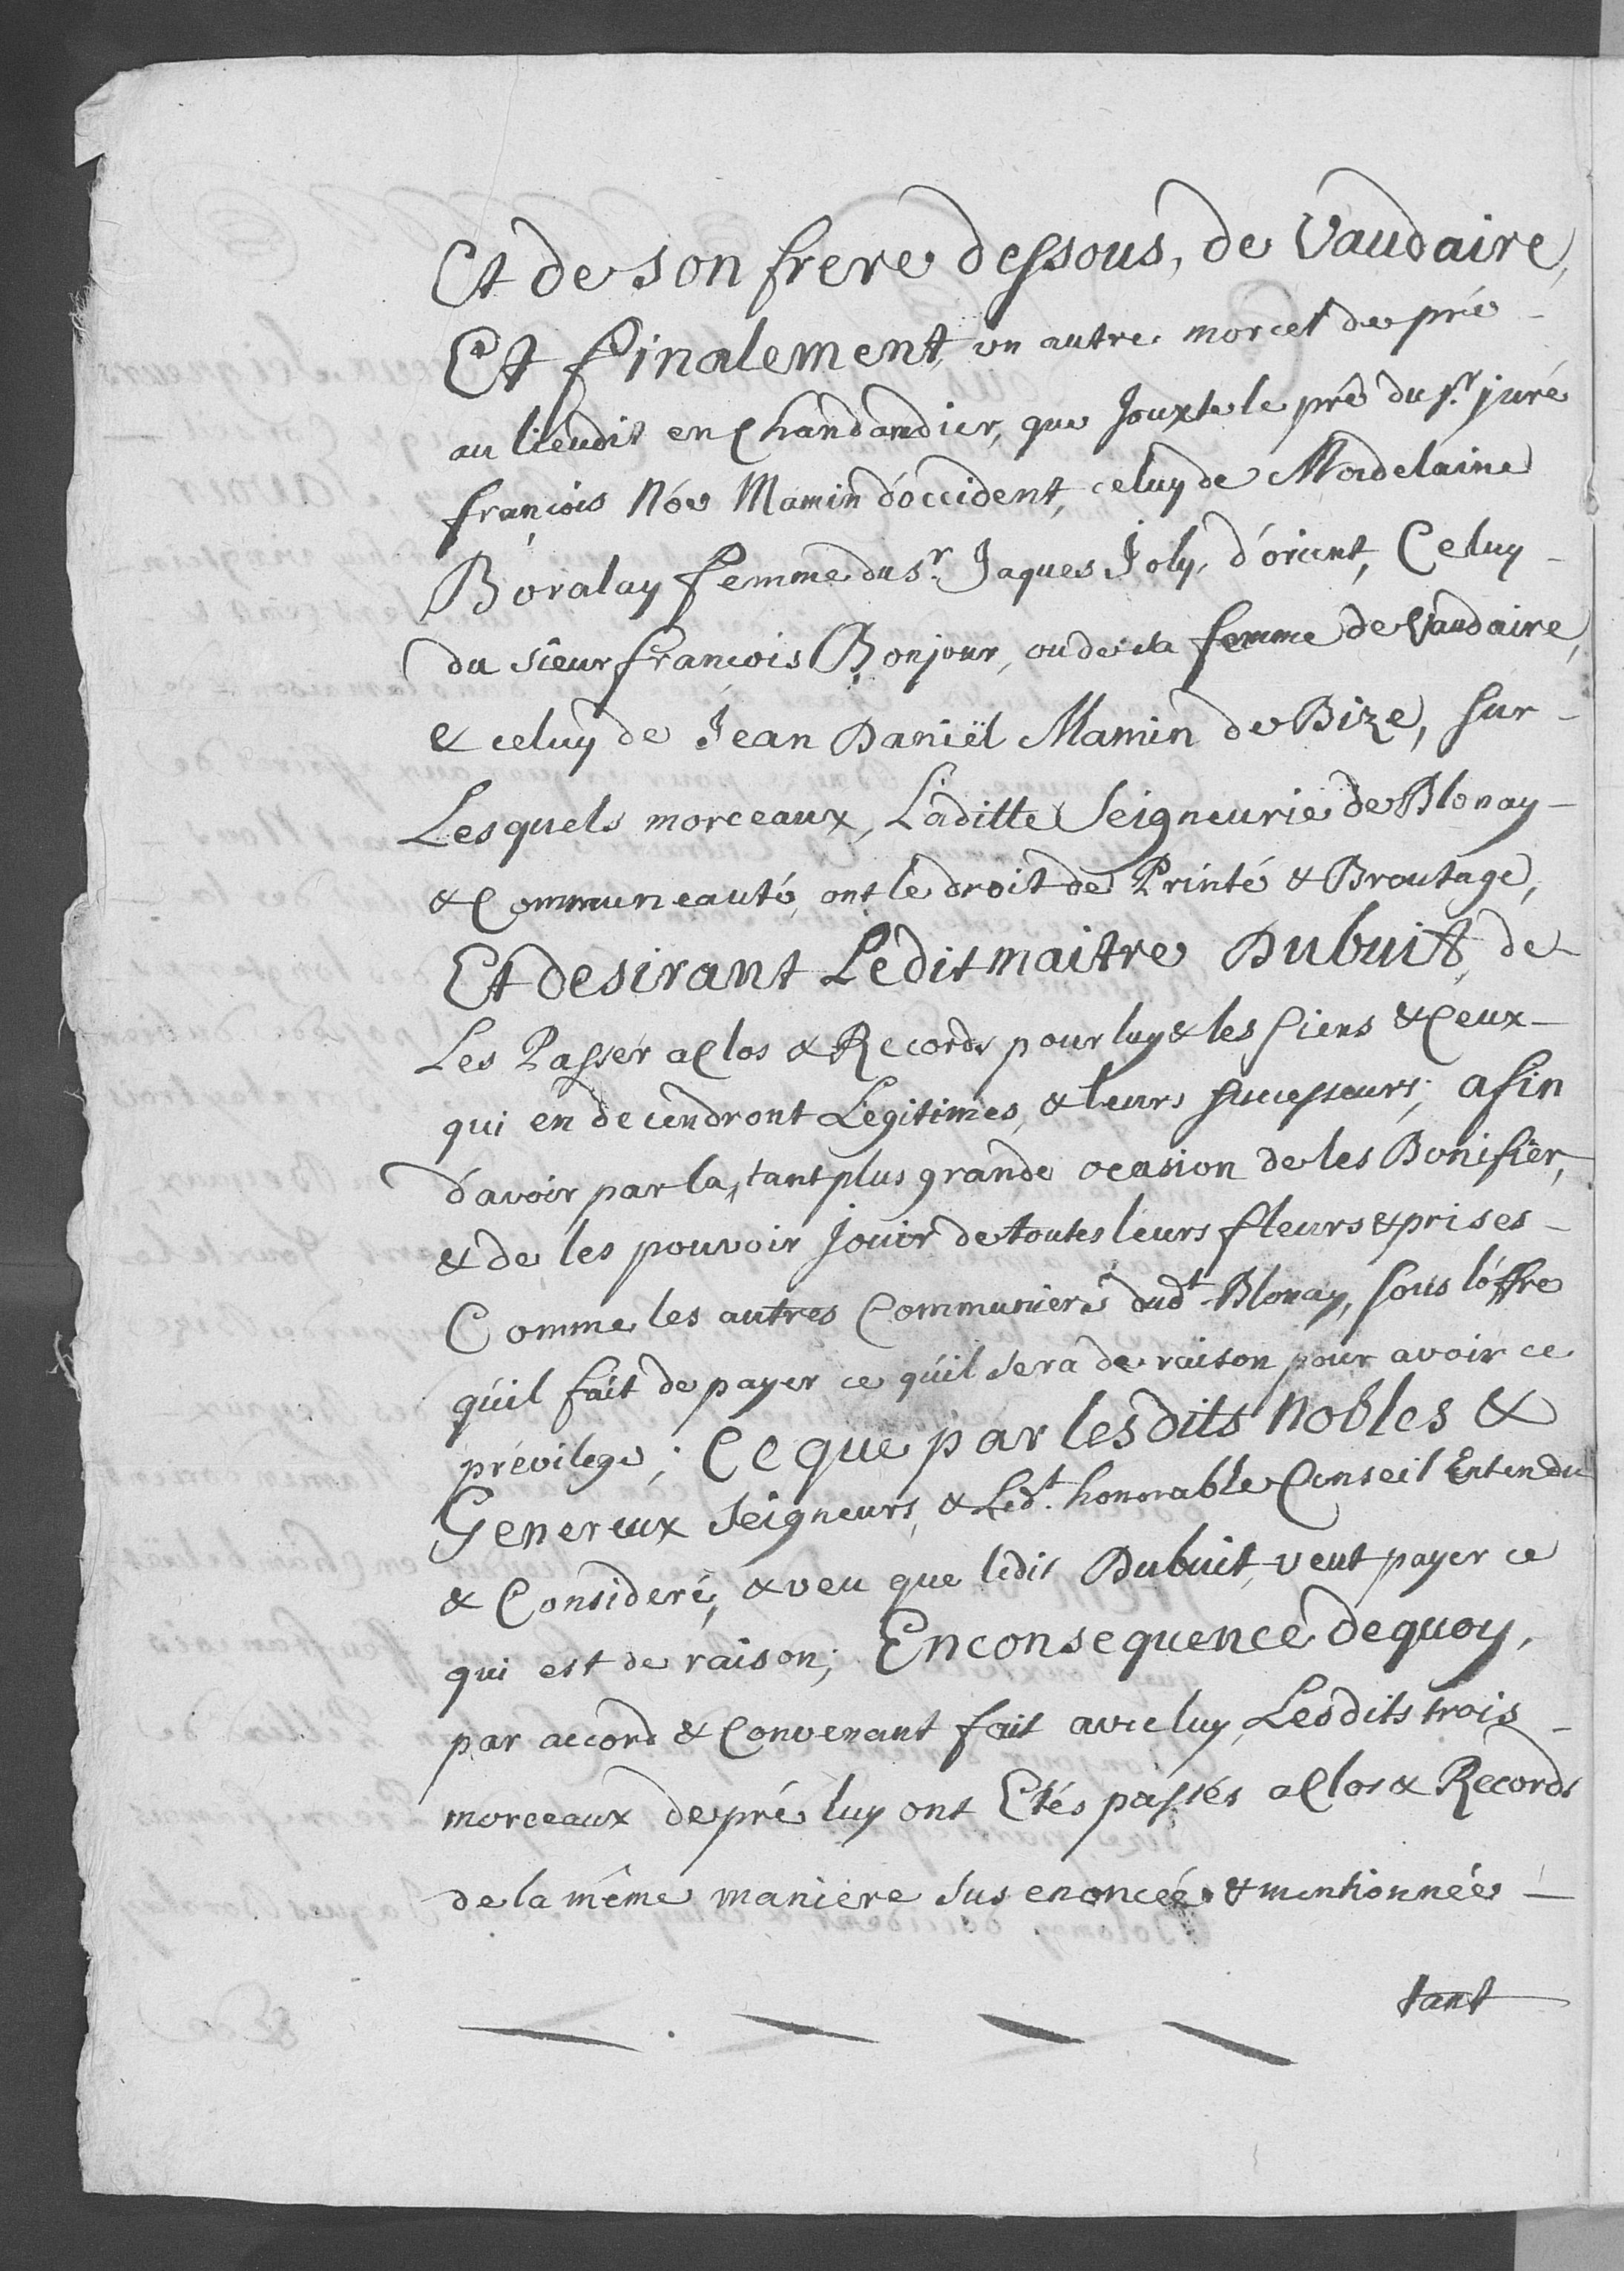 Et de son frere dessous, de Vaudaire,
Et finalement, un autre morcel de pré -
au lieudit en Chandandier, que Jouxte le pré du sr. juré
françois Nóe Mamin d'occident, celuy de Madelaine
Boralay femme du sr. Jaques Joly, d'orient, Celuy -
du sieur françois Bonjour, ou de sa femme de Vaudaire,
& celuy de Jean Daniël Mamin de Bize, sur -
Lesquels morceaux, Laditte Seigneurie de Blonay -
& Communeauté, ont le droit de Printé & Broutage,
Et desirant Ledit maitre Dubuit, de -
Les Passer a Clos & Records pour luy & les siens & Ceux -
qui en decendront Legitimes, & leurs successeurs; afin
d'avoir par la, tant plus grande ocasion de les Bonifier,
& de les pouvoir Jouir de toutes leurs fleurs & prises -
Comme les autres Communiers dudt. Blonay, sous l'offre
qu'il fait de payer ce qu'il sera de raison pour avoir ce
prévilege; Ce que par lesdits Nobles &
Genereux Seigneurs, & Ledt. honorable Conseil Entendu
& Consideré, & veu que ledit Dubuit, veut payer ce
qui est de raison; En consequence dequoy,
par accord & Convenant fait avec luy, Lesdits trois -
morceaux de pré luy ont Etés passés a Clos & Records
de la même maniere sus enoncée & mentionnée -
tant